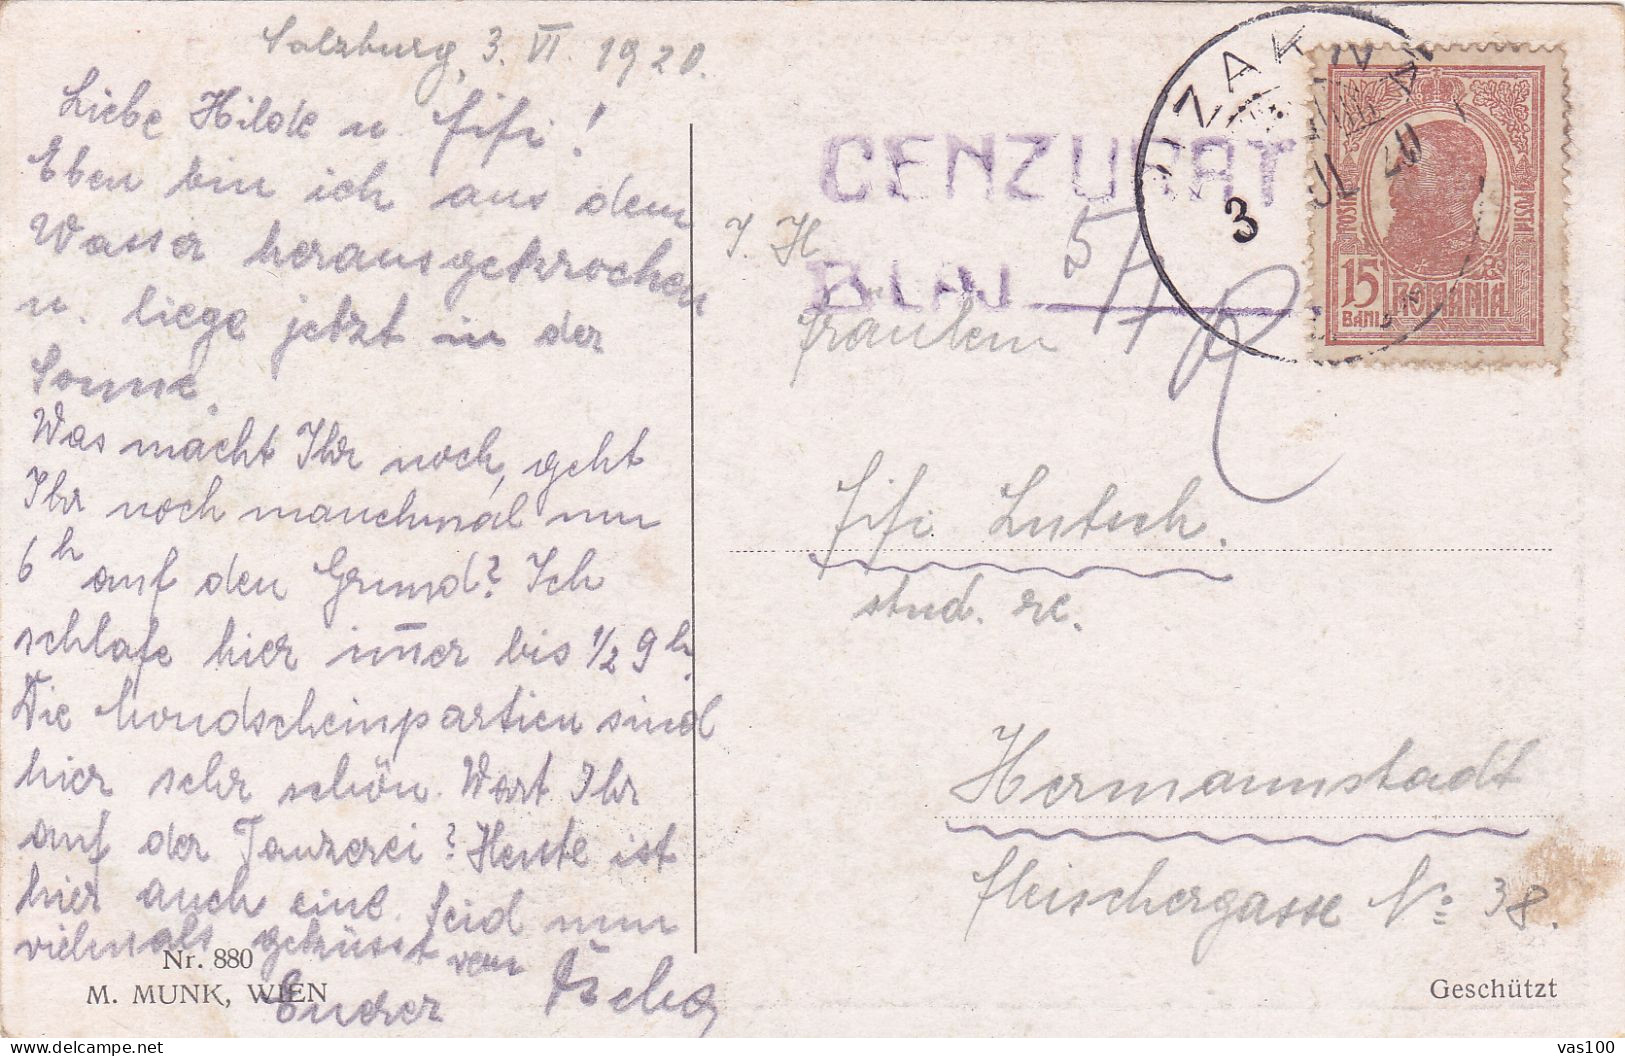 Salzburg, 3. VI. 1920.
Liebe Hilde u. Fifi!
Eben bin ich aus dem
Wasser herausgekrochen
u. liege jetzt in der
Sonne.
Was macht Ihr noch, geht
Ihr noch manchmal um
6h auf den Grund? Ich
schlafe hier im̅er bis ½ 9h.
Die Mondscheinpartien sind
hier sehr schön. Wart Ihr
auf der Tanzerei? Heute ist
hier auch eine. Seid nun
vielmals geküsst von
Eurer
Nr. 880
M. MUNK, WIEN
CENZURAT
BLAJ
5
I. H
Fräulein
Fifi Lutsch.
stud. re.
Hermannstadt
Fleischergasse No 38.
Geschützt
3 JUL 20
POSTA
POSTA
15
BANI
ROMANIA
vas100